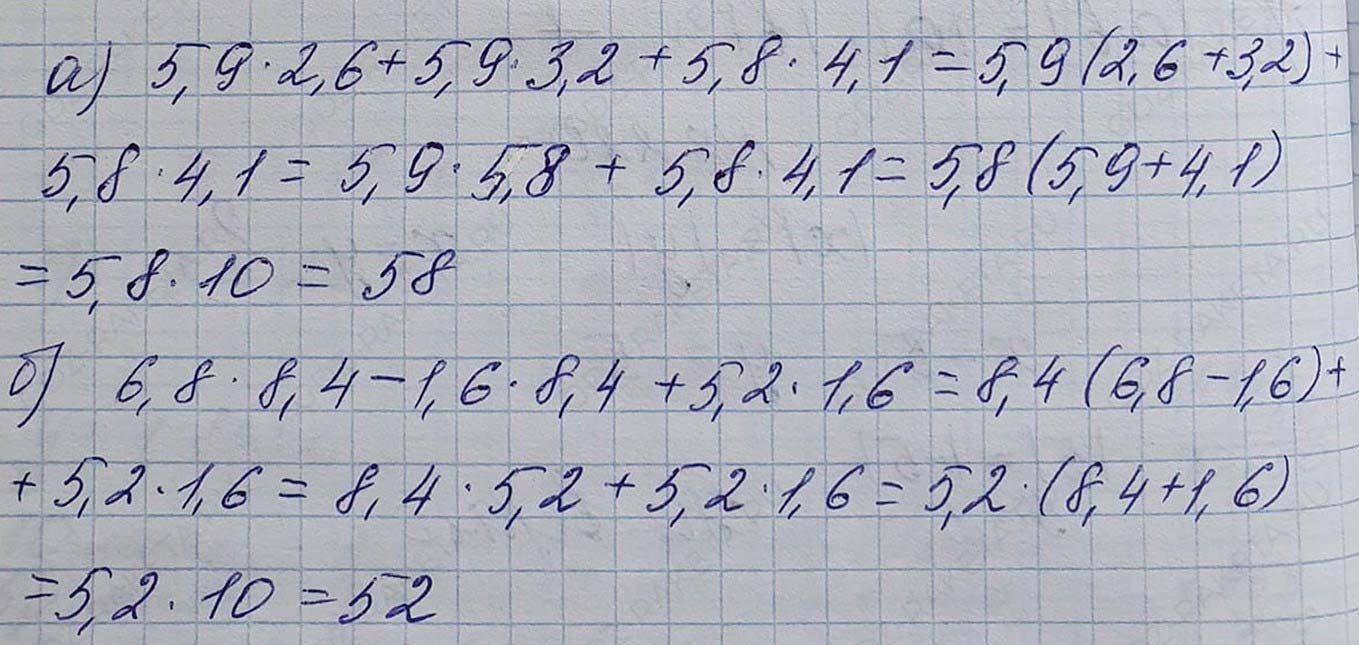 а) 5,9·2,6+5,9·3,2+5,8·4,1=5,9(2,6+3,2)+
5,8·4,1=5,9·5,8+5,8·4,1=5,8(5,9+4,1)
=5,8·10=58
б) 6,8·8,4-1,6·8,4+5,2·1,6=8,4(6,8-1,6)+
+5,2·1,6=8,4·5,2+5,2·1,6=5,2·(8,4+1,6)
=5,2·10=52